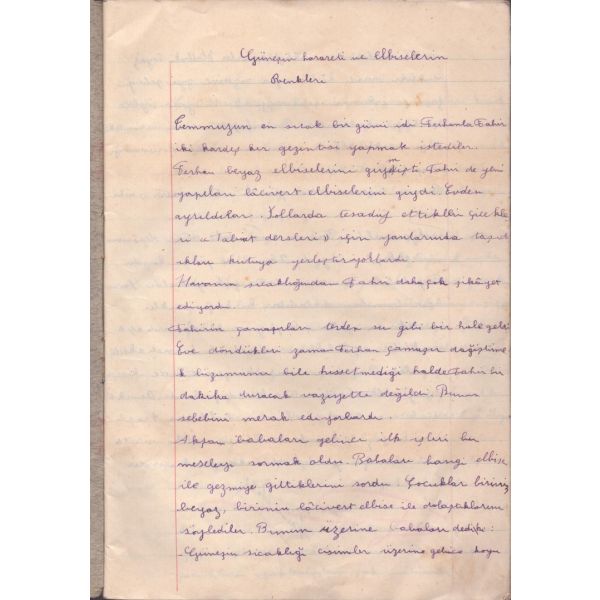 Güneşin harareti ve elbiselerin
Renkleri
Temmuzun en sıcak bir günü idi Ferhanla Tahir
iki kardeş kır gezintisi yapmak istediler.
Ferhan beyaz elbiselerini giymişti Tahir de yeni
yapılan lâcivert elbiselerini giydi. Evden
ayrıldılar. Yollarda tesadüf ettikleri çiçekle
ri « Tabiat dersleri » için yanlarında taşıd
ıkları kutuya yerleştiriyorlardı
Havanın sıcaklığından Tahir daha çok şikâyet
ediyordu.
Tahirin çamaşırları terden su gibi bir hale geldi
Eve döndükleri zaman Ferhan çamaşır değiştirme
k lüzumunu bile hissetmediği halde Tahir bir
dakika duracak vaziyette değildi. Bunun
sebebini merak ediyorlardı.
Akşam babaları gelince ilk işleri bu
meseleyi sormak oldu. Babaları hangi elbise
ile gezmiye gittiklerini sordu. Çocuklar birinin
beyaz, birinin lâcivert elbise ile dolaştıklarını
söylediler. Bunun üzerine babaları dediki:
-Güneşin sıcaklığı cisimler üzerine gelince koyu